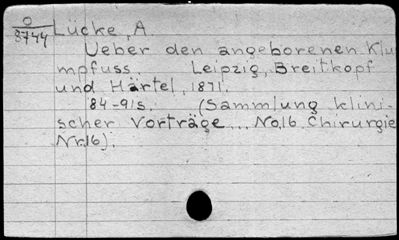 O
8744
Lücke, A.
Ueber den angeborenen Klu-
mpfuss. Leipzig, Breitkopf
und Härtel, 1871.
84-91s. (Sammlung klini-
scher Vorträge... No.16 Chirurgie
Nr.16).